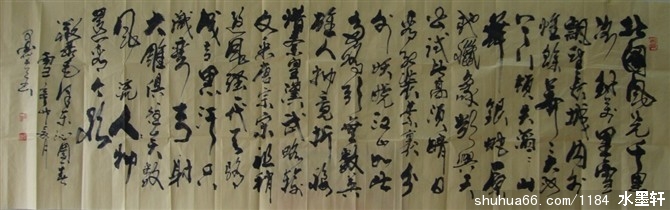 北国风光千里
冰封万里雪
飘望长城内外
惟余莽莽大河
上下顿失滔滔山
舞银蛇原
驰蜡象欲与天
公试比高须晴日
看红装素裹分
外妖娆江山如此
多娇引无数英
雄人物竞折腰
惜秦皇汉武略输
文采唐宗宋祖稍
逊风骚一代天骄
成吉思汗只
识弯弓射
大雕俱往矣数
风流人物
还看今朝
泽东沁园春
shuhua66.com/1184 水墨轩